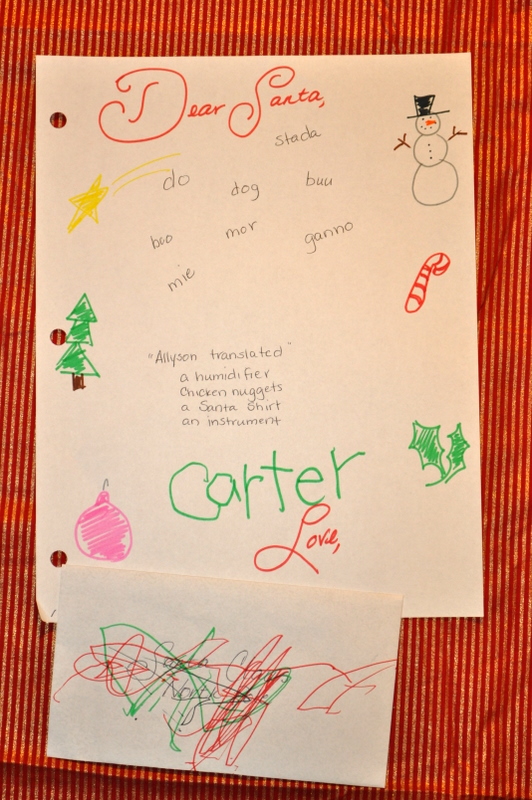 Dear Santa,
stada
do dog buu
boo mor ganno
mie
"Allyson translated"
a humidifier
Chicken nuggets
a Santa Shirt
an instrument
Carter
Love,